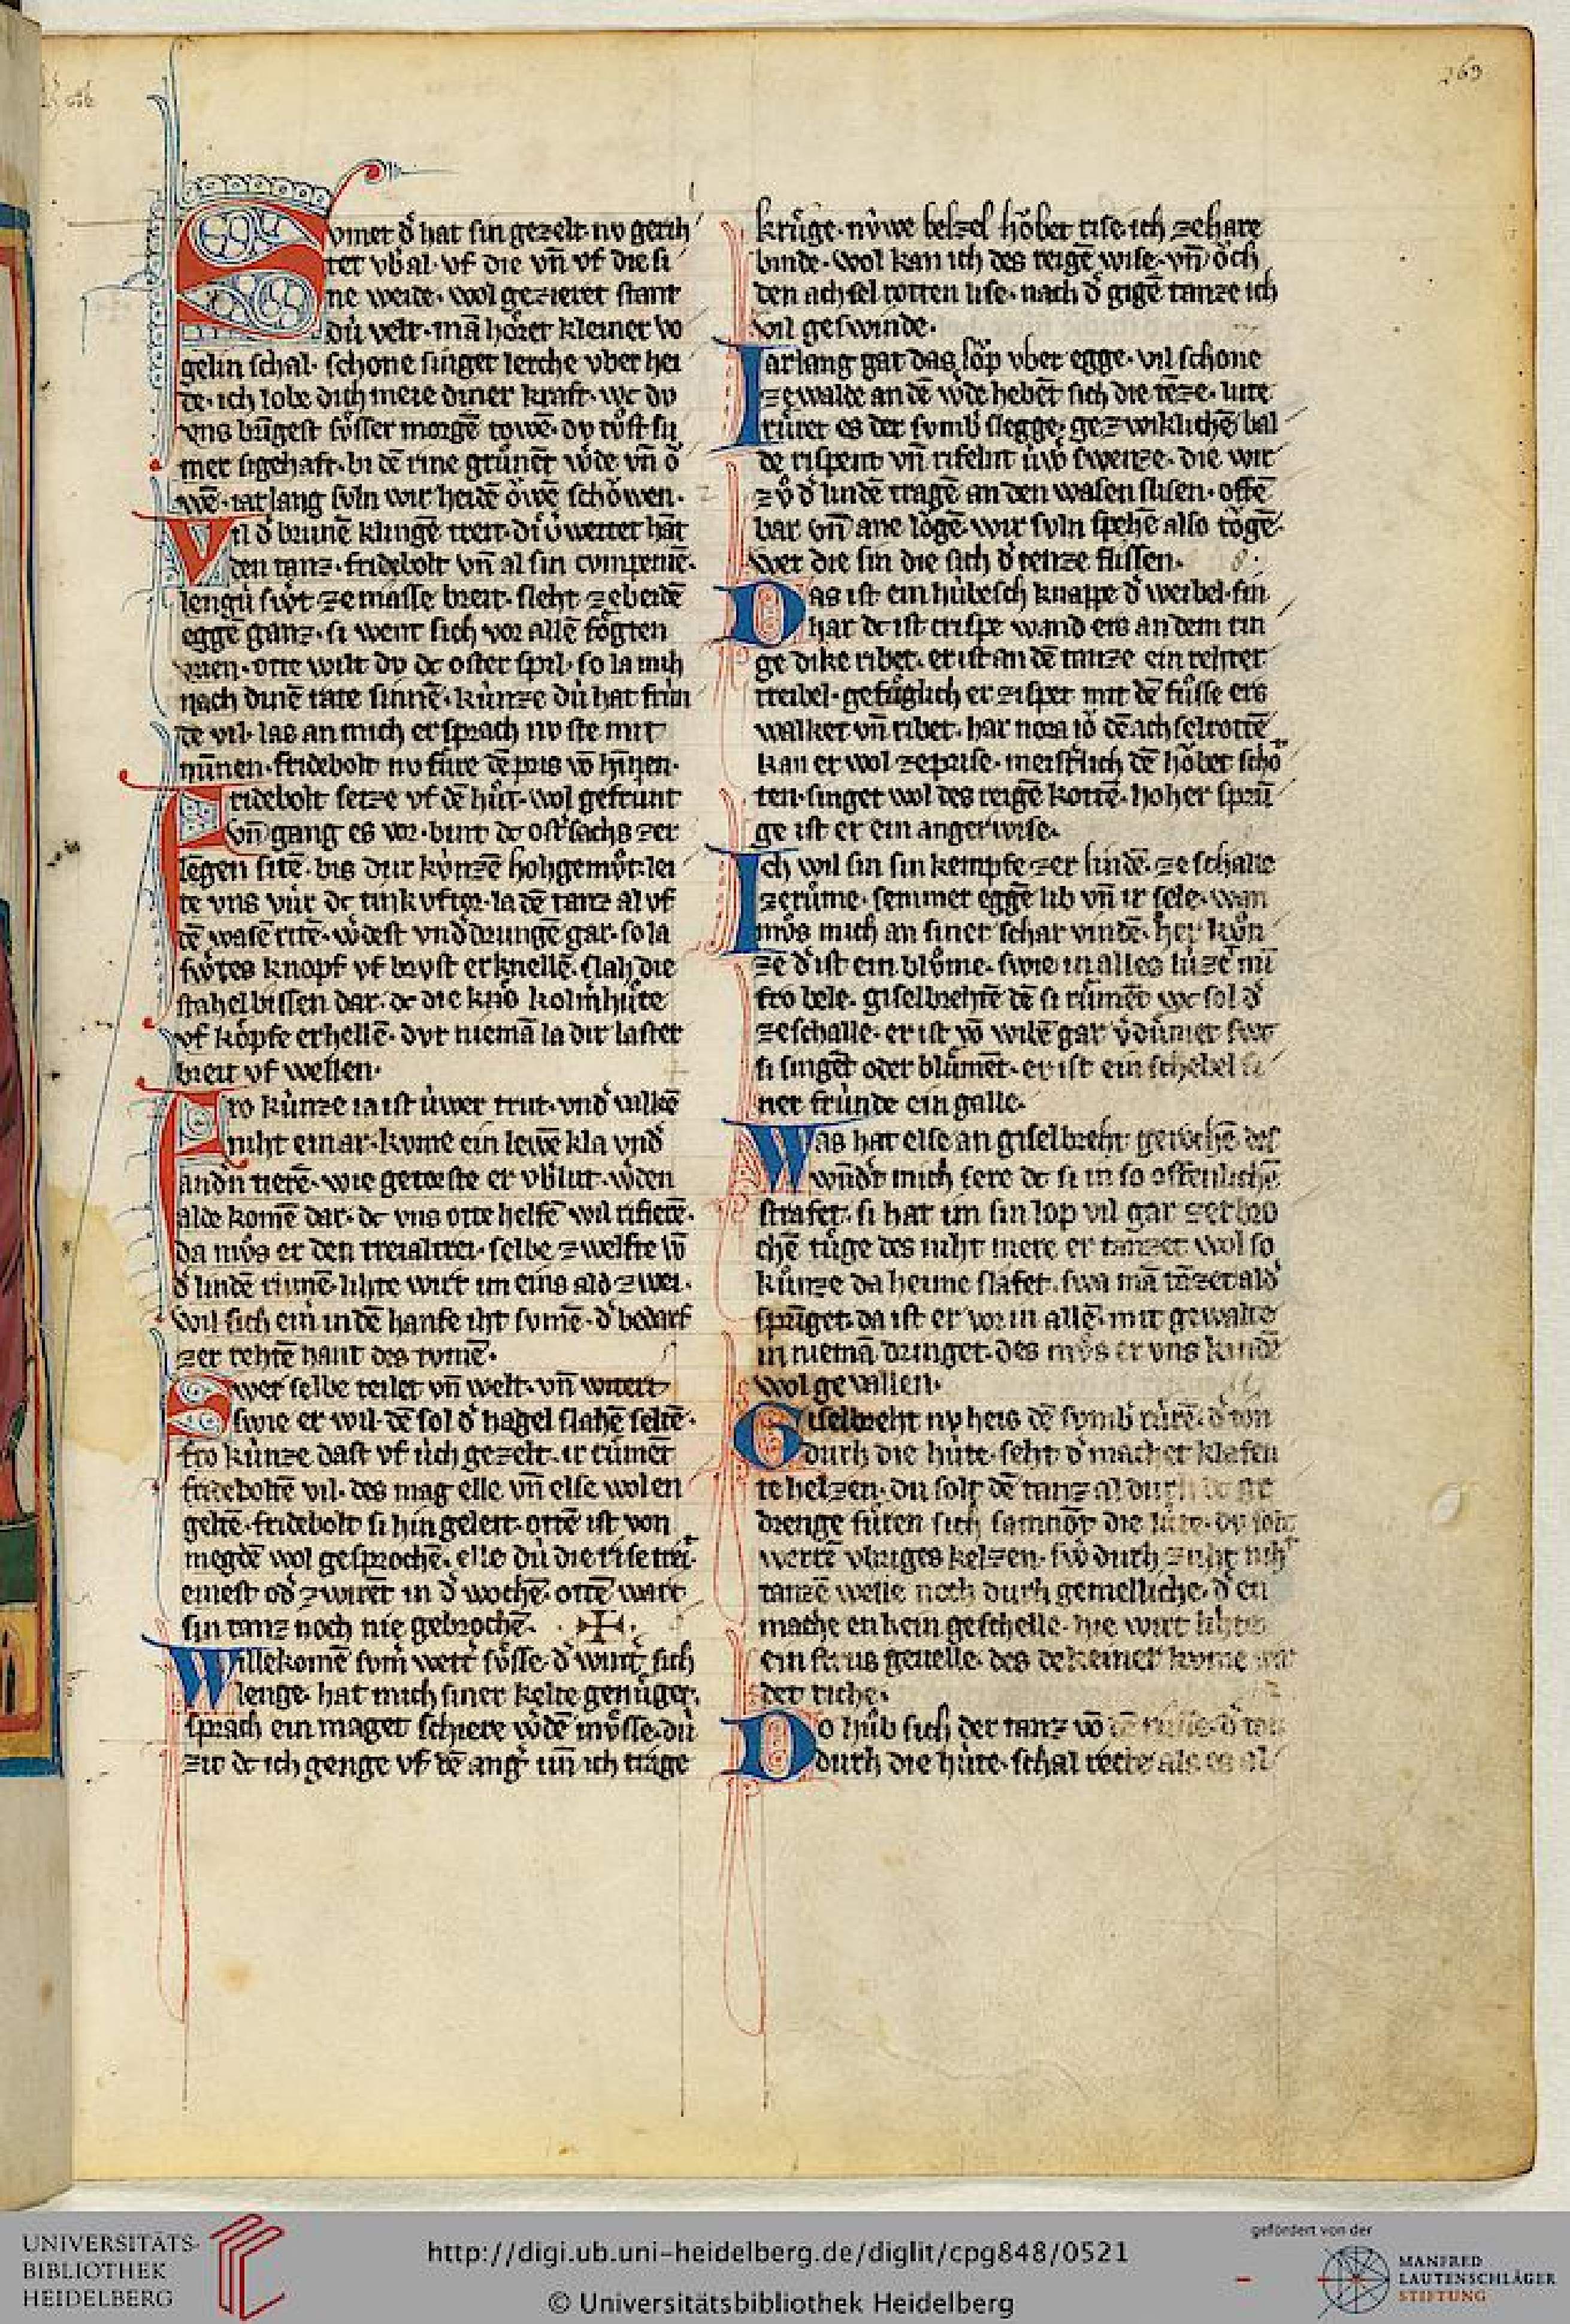 263
Svmer d͛ hat sin gezelt nv gerih
tet vb͛al · vf die vn̄ vf die si
ne weide · wol gezieret stant
dú velt · mā hoͤret kleiner vo
gelin schal · schone singet lerche vber hei
de · ich lobe dich meie diner kraft · wc dv
vns bringest suͤsser morgē towē · dv tuͦst sv
mer sigehaft · bi dē rine gruͤnēt w͛de vn̄ oͮ
wē · iarlang svln wir heidē oͮwē schoͮwen ·
Vil d͛ brunē klingē treit · dú v́ wettet hāt
den tanz · fridebolt vn̄ al sin cvmpenīe ·
lengú sw͛t ze masse breit · sleht ze beidē
eggē ganz · si went sich vor allē foͤgten
vrien · otte wilt dv dc oster spil · so la mih
nach dinē rate sinnē · kúnze dú hat frún
de vil · las an mich er sprach nv ste mit
minnen · fridebolt nv fuͤre dē pris vō hinnen ·
Fridebolt setze vf dē huͦt · wol gefrúnt
vn̄ gang es vor · bint dc ost͛sachs zer
lēgen sitē · bis dur kv́nzē hohgemuͦt · lei
te vns vúr dc tinkvftor · la dē tanz al vf
dē wasē ritē · w͛dest vnd͛drungē gar · so la
sw͛tes knopf vf brust erknellē · slah die
stahelbissen dar · dc die knō kolmhuͤte
vf koͤpfe erhellē · dvr niemā la dir laster
breit vf wellen ·
Fro kúnze ia ist úwer trut · vnd͛ valkē
niht ein ar · kvme ein lewē kla vnd͛
and͛n tierē · wie getorste er vb͛lut · w͛den
alde komē dar · dc vns otte helfē wil rifierē ·
da mvͦs er den treialtrei · selbe zwelfte vō
d͛ lindē rinnē · lihte wirt im eins ald zwei ·
wil sich ein in dē hanfe iht svmē · d͛ bedarf
zer rehtē hant des rvmē ·
Swer selbe teilet vn̄ welt · vn̄ wittert
swie er wil · dē sol d͛ hagel slahē seltē ·
fro kúnze dast vf úch gezelt · ir rúmet
fridebolte vil · des mag elle vn̄ else wol en
geltē · fridebolt si hin geleit · ottē ist von
megdē wol gesprochē · elle dú die rise trei
einest od͛ zwirēt in d͛ wochē · ottē wart
sin tanz noch nie gebrochē ·
Willekomē som͛ wet͛ suͤsse · d͛ wint͛ sich
lenge · hat mich siner kelte genuͤget ·
sprach ein maget schiere w͛dē mvͤsse · dú
zit dc ich genge vf dē ang͛ vn̄ ich trage
kruͤge · núwe belzel hoͮbet rise ich ze hare
binde · wol kan ich des reigē wise · vn̄ oͮch
den achsel rotten lise · nach d͛ gigē tanze ich
vil geswinde ·
Iarlang gat das loͮp vber egge · vil schone
ze walde an dē w͛de hebēt sich die tēze · lute
ruͤret es der svmb͛ slegge · gezwiklichē bal
de rispent vn̄ rifelnt úw͛ sweize · die wir
zvͦ d͛ lindē tragē an den wasen slisen · offē
bar vn̄ ane loͮgē · wir svln spehē also toͮgē ·
wer die sin die sich d͛ tenze flissen ·
Das ist ein húbesch knappe d͛ weibel · sin
har dc ist crispe wand ers an dem rin
ge dike ribet · er ist an dē tanze ein rehter
treibel · gefuͤglich er zispet mit dē fuͤsse ers
walket vn̄ ribet · har nora io dē achselrottē
kan er wol ze prise · meist͛lich dē hoͮbet scho
ten · singet wol des reigē kottē · hoher sprú
ge ist er ein angerwise ·
Ich wil sin sin kempfe zer lindē · ze schalle
ze ruͤme · semmet eggē lib vn̄ ir sele · wan
mvͦs mich an siner schar vindē · her kuͦn
ze d͛ ist ein bluͦme · swie in alles hize mī
fro bele · giselbrehtē dē si ruͤmēt wc sol d͛
ze schalle · er ist vō wilē gar v͛dúnnet swc
si singēt oder bluͤmēt · er ist ein schebel si
ner frúnde ein galle ·
Was hat else an giselbreht gerochē des
wūd͛t mich sere dc si in so offenlichē
strafet · si hat im sin lop vil gar zerbro
chē túge des niht mere er tanzet wol so
kuͤnze da heime slafet · swa mā tāzet ald͛
springet · da ist er vor in allē · mit gewalte
in niemā dringet · des mvͦs er vns kindē
wol gevallen ·
Giselbreht nv heis dē svmb͛ ruͤrē · d͛ ton
durh die húte · seht d͛ machet klafen
te helzen · du solt dē tanz al durh dc ge
drenge fuͤren sich samnōt die lúte · dv solt
wertē vbriges kelzen · sw͛ durh zuht niht
tanzē welle noch durh gemelliche · d͛ en
mache enkein geschelle · hie wirt lihte
ein strus gevelle · des dekeiner kvme wir
det riche ·
Do huͦb sich der tanz vō dē · d͛ ton
durh die húte · schal recht als es al
UNIVERSITÄTS-
BIBLIOTHEK
HEIDELBERG
http://digi.ub.uni-heidelberg.de/diglit/cpg848/0521
© Universitätsbibliothek Heidelberg
gefördert von der
MANFRED
LAUTENSCHLÄGER
STIFTUNG